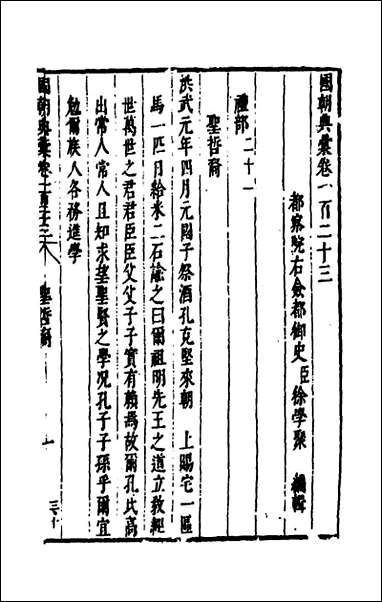 國朝典彙卷一百二十三
都察院右僉都御史臣徐學聚 編輯
禮部二十一
聖哲裔
洪武元年四月元國子祭酒孔克堅來朝 上賜宅一區
馬一匹日給米二石諭之曰爾祖明先王之道立教經
世萬世之君君臣臣父父子子實有賴焉故爾孔氏高
出常人常人且知求望聖賢之學況孔子子孫乎爾宜
勉爾族人各務進學
國朝典彙卷一百二十三 聖哲裔 一